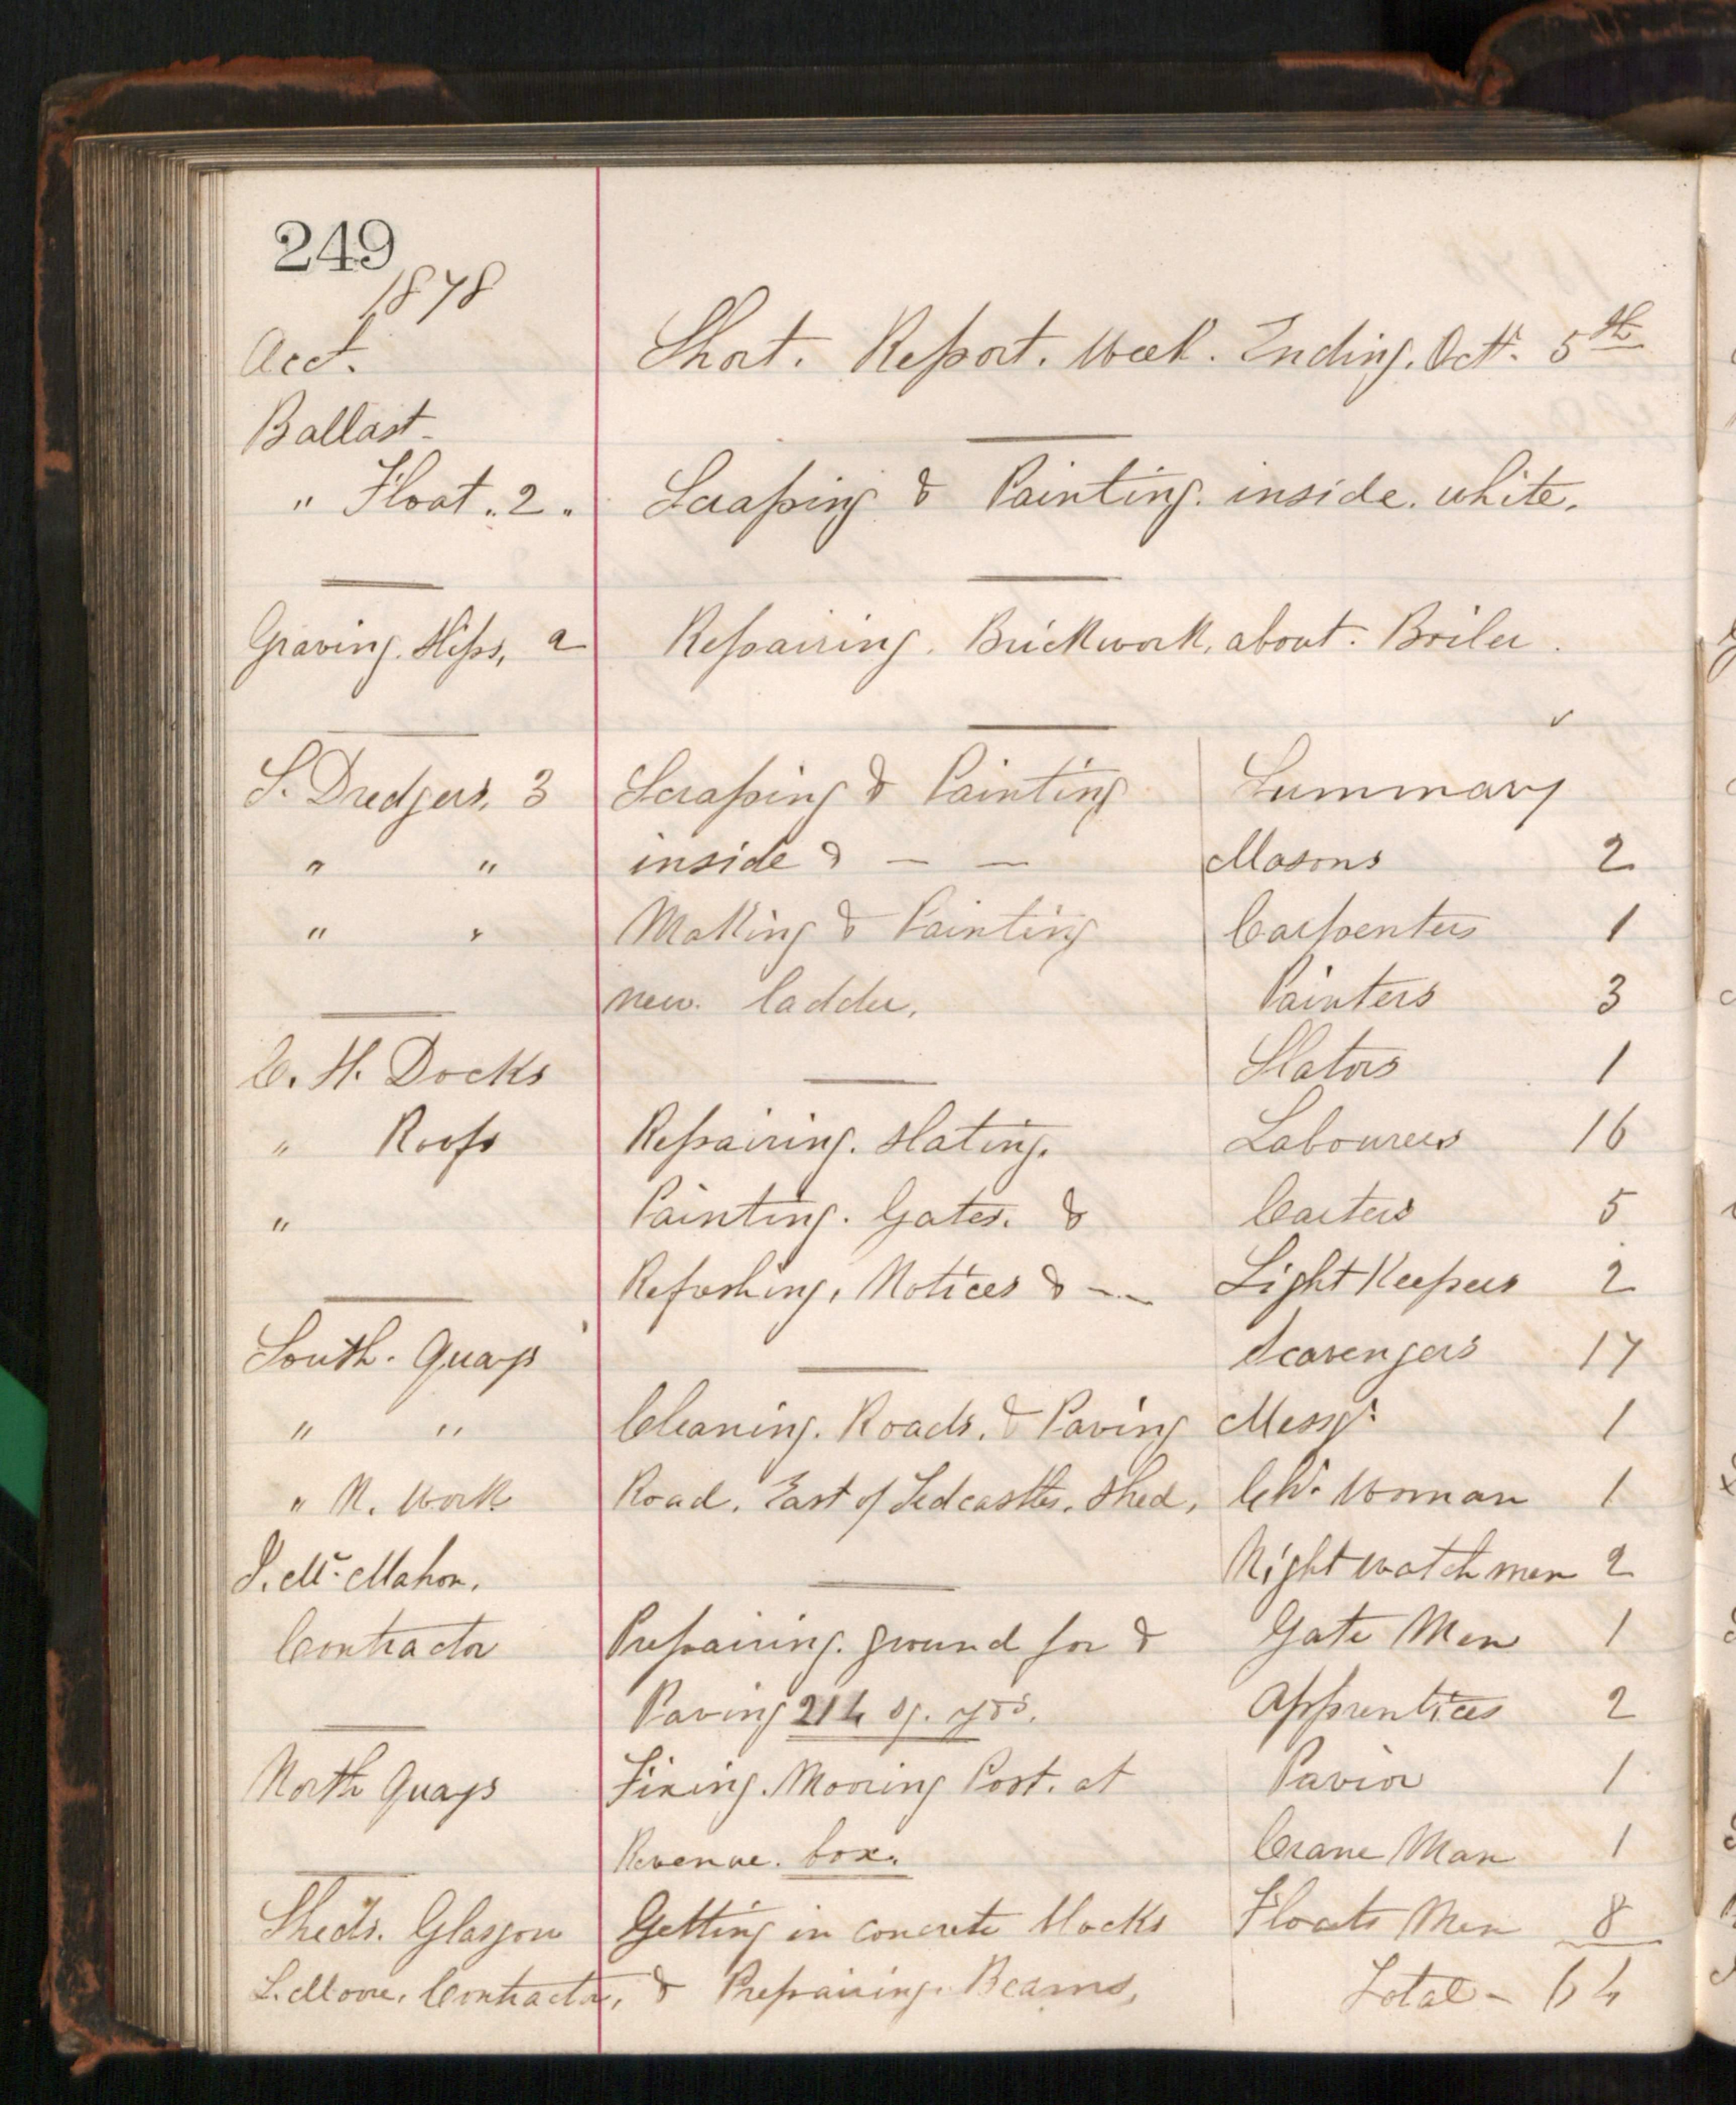 249
1878
Acct. Short. Report. Week. Ending. Octr. 5th
Ballast
" Float. 2. Scraping & Painting. inside. white.
Graving. Slips, 2 Repairing. Brickwork. about. Boiler.
S. Dredgers. 3 Scraping & Painting Summary
" " inside & — — Masons 2
" " Making & Painting Carpenters 1
new. ladder. Painters 3
C. H. Docks Slators 1
" Roofs Repairing. slating. Labourers 16
" Painting. Gates. & Carters 5
Refreshing. Notices & -- Light Keepers 2
South. Quays Scavengers 17
" " Cleaning. Roads. & Paving Messgr 1
" N. Work Road. East of Tedcastles. Shed, Chr. Woman 1
J. Mc. Mahon. Night watch men 2
Contractor Preparing. ground for & Gate Men 1
Paving 214 sq. yds. Apprentices 2
North Quays Fixing. Mooring Post. at Pavior 1
Revenue. box. Crane Man 1
Sheds. Glasgow Getting in concrete blocks Floats Men 8
S. Moore. Contractor, & Preparing. Beams, Total - 64